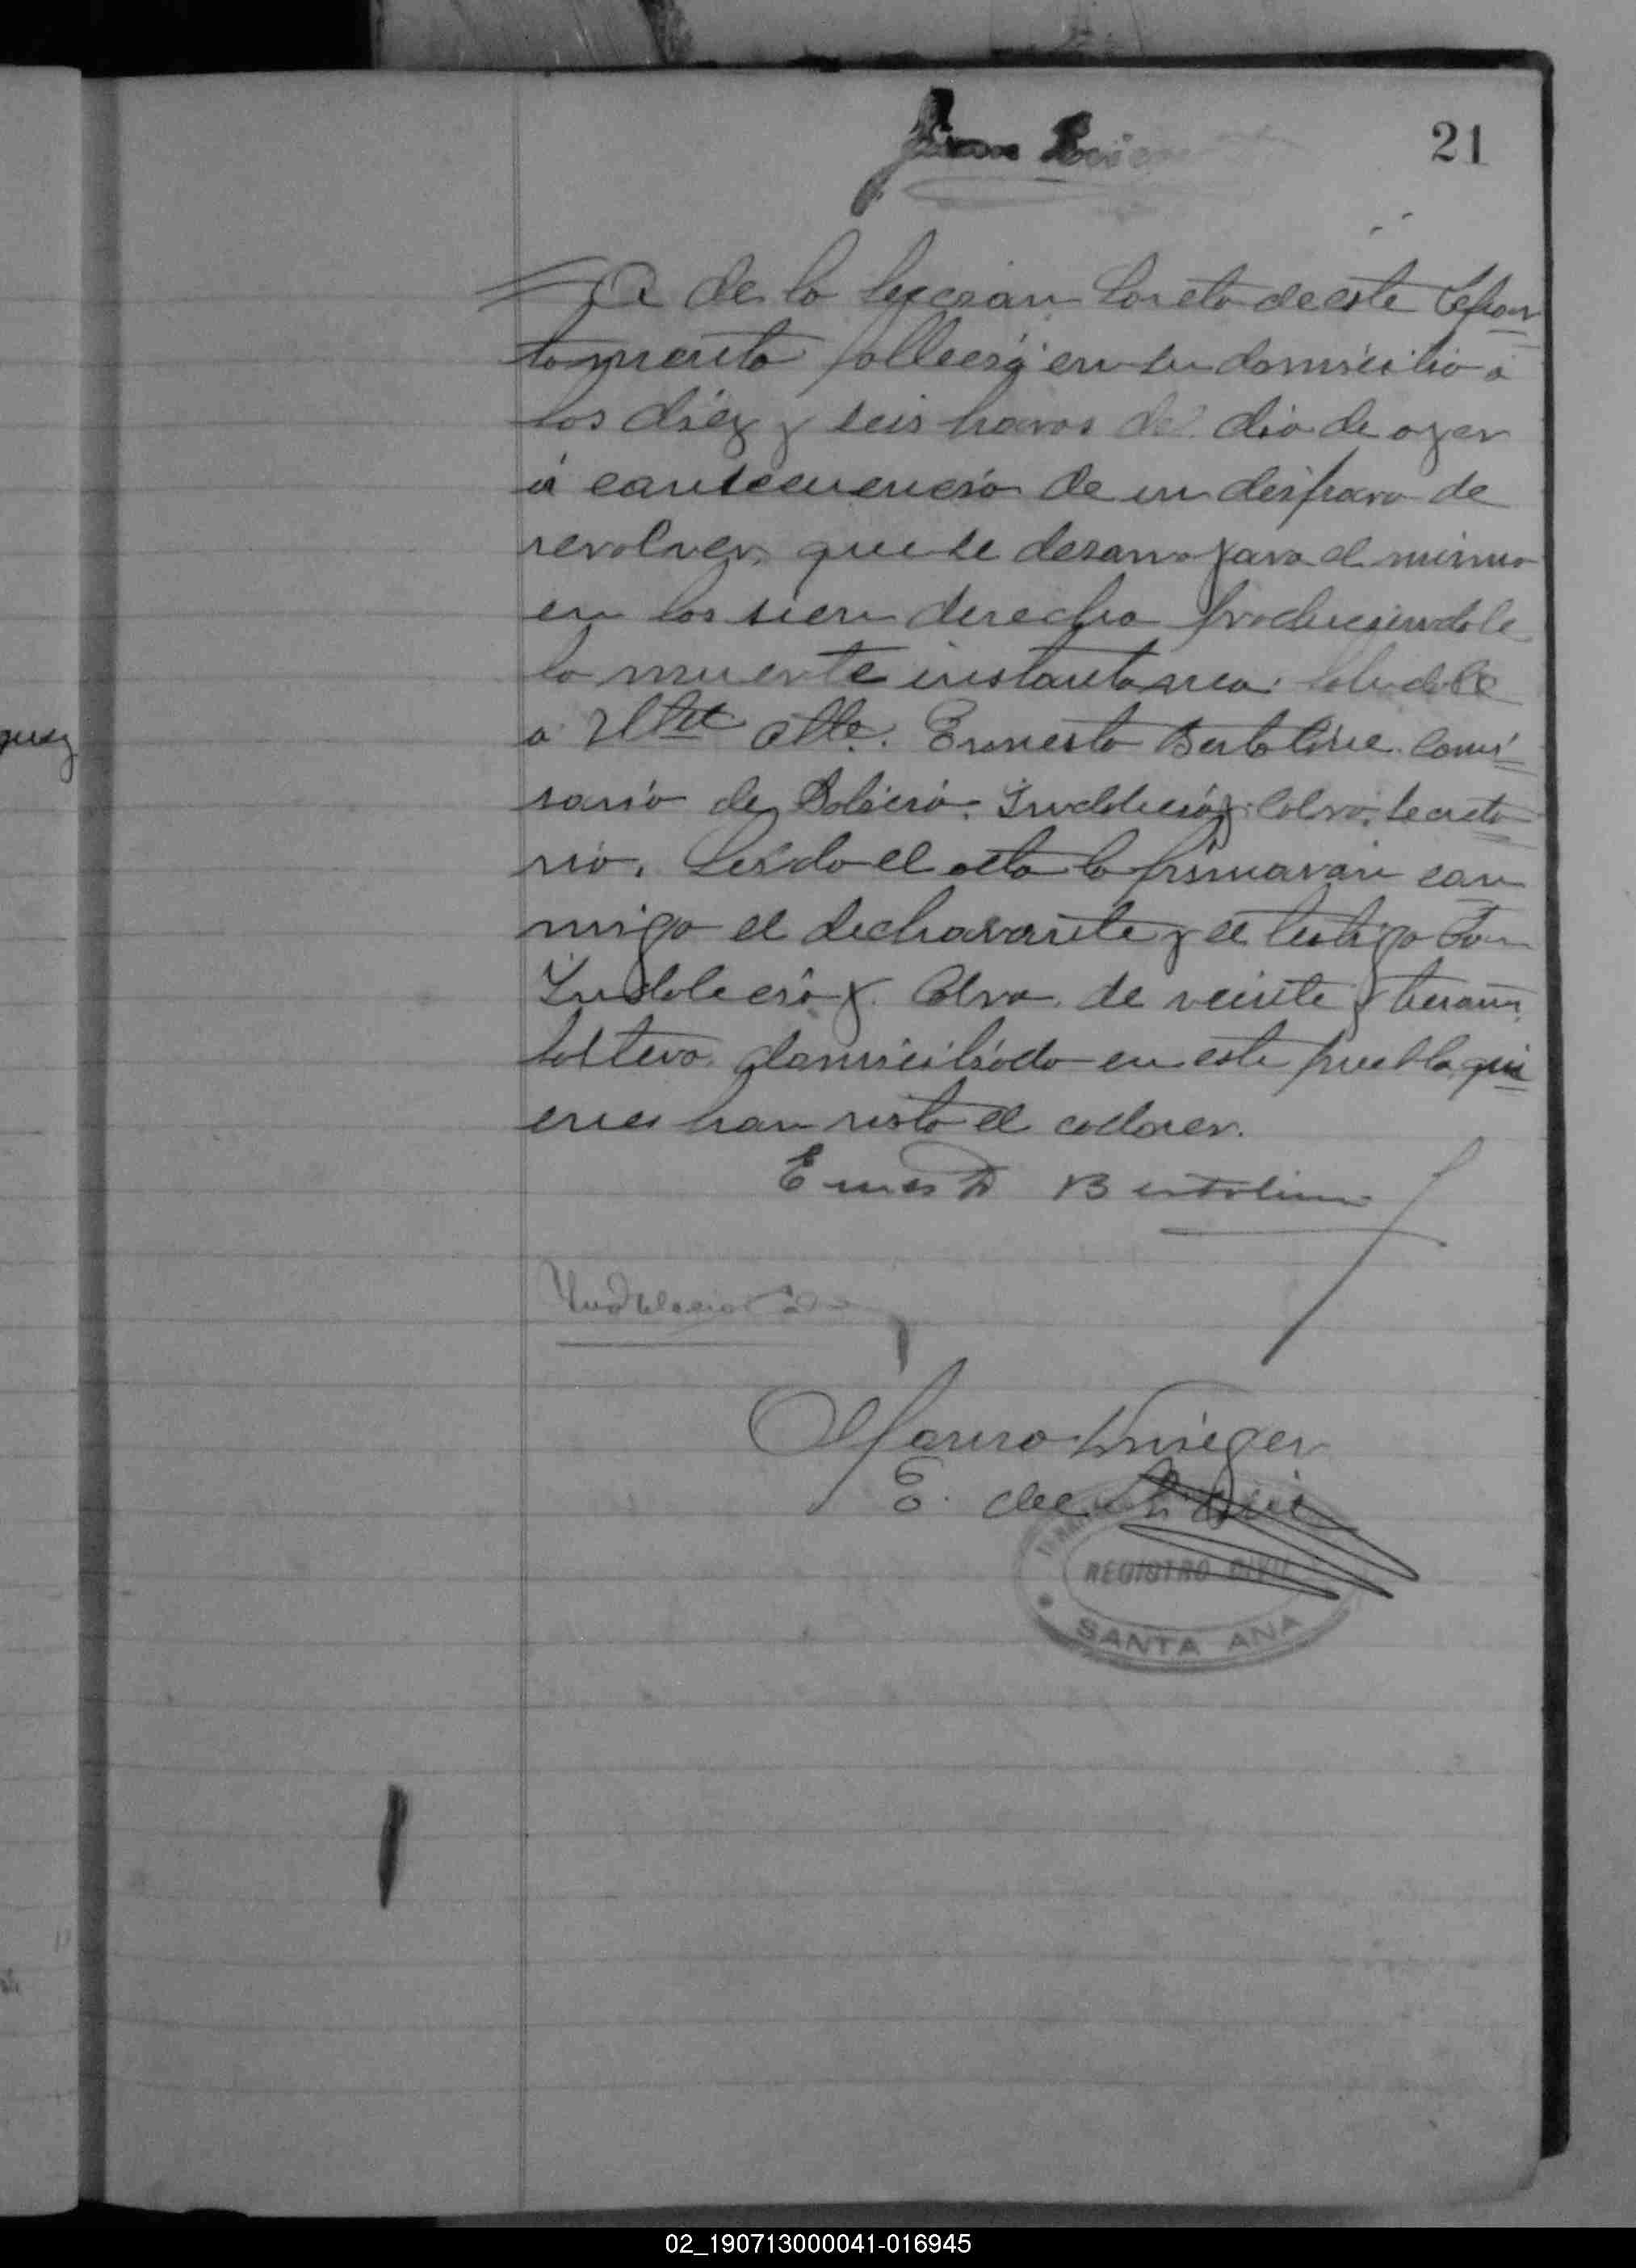 21
Juan
A de la seccion Loreto de este Depar
tamento fallecio en su domicilio a
las diez y seis horas del dia de ayer
á consecuencia de un disparo de
revolver, que se desarrojara el mismo
en los sien derecha produciendole
la muerte instantanea. Saludole
a Ud. Atte. Ernesto Bertolini Comi
sario de Policia. Indalecio Calvo, Secreta
rio. Leida el acta la firmaran con
migo el declarante y el testigo Don
Indalecio Calvo de veinte y tres años
soltero domiciliado en este pueblo qui
enes han visto el cadaver.
Ernesto Bertolini
Indalecio Calvo
Krieger
E. del R. Civil
REGISTRO CIVIL
SANTA ANA
guez
02_190713000041-016945